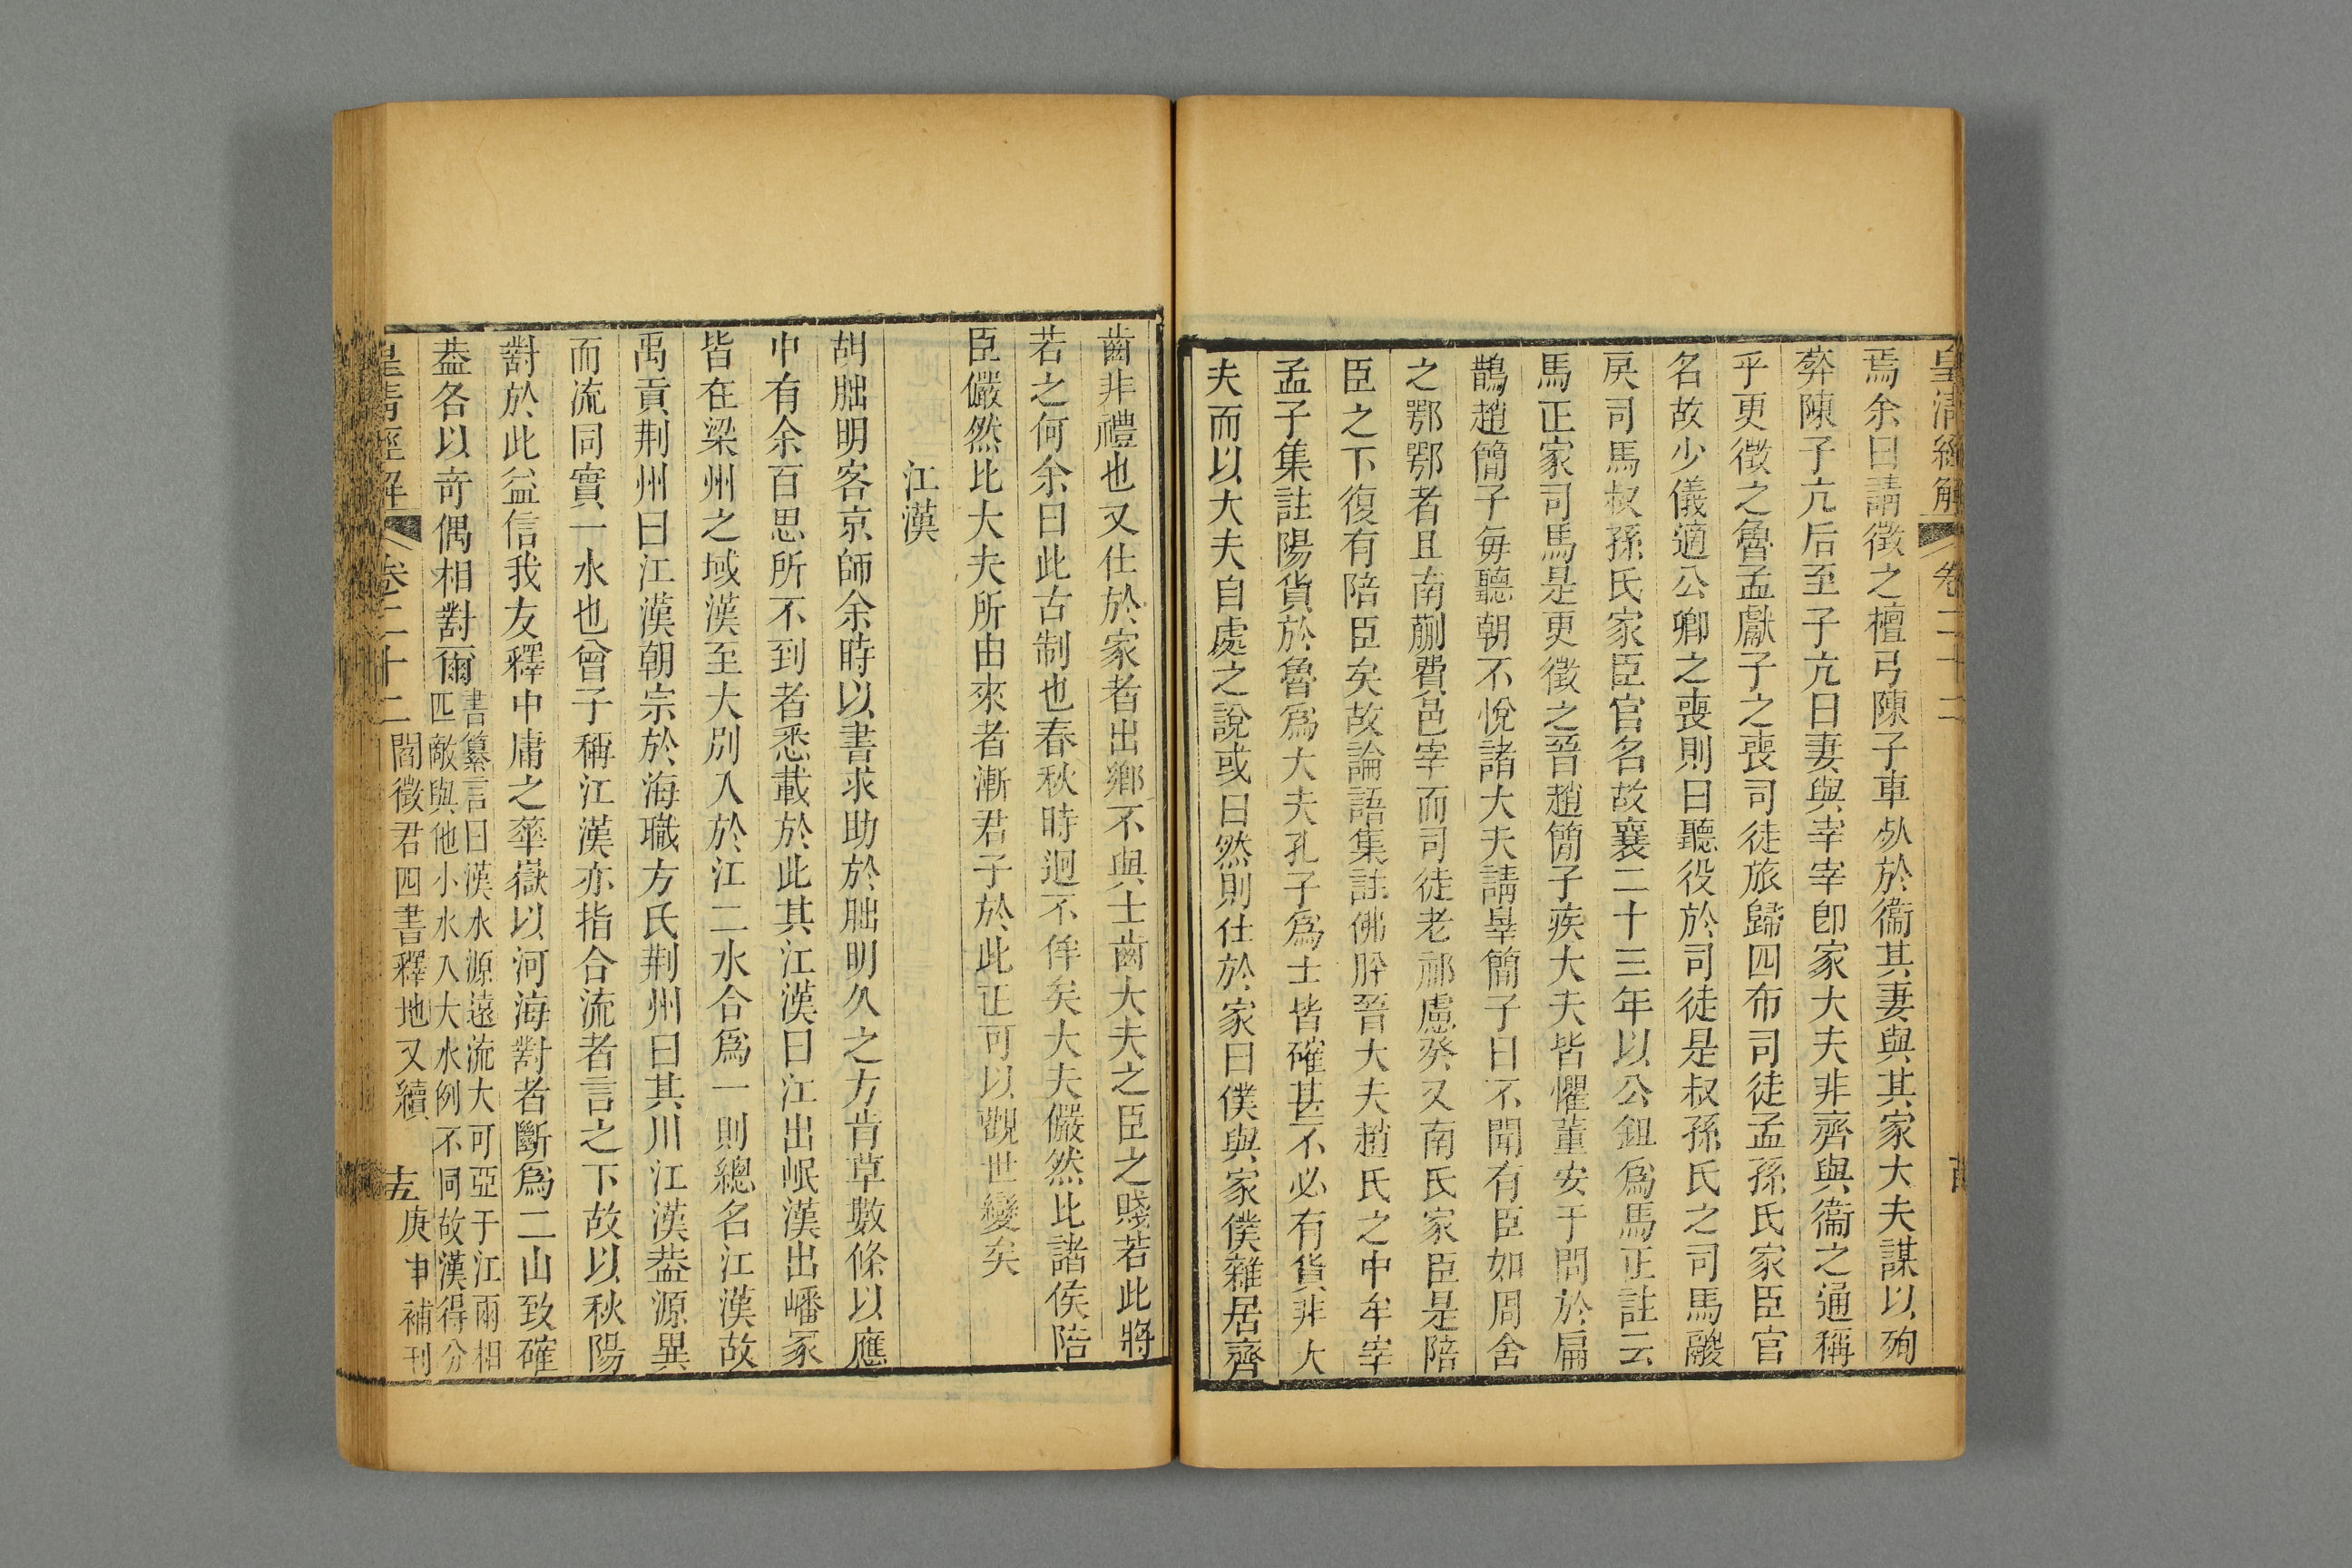 皇清經解 卷二十二
焉余曰請徵之檀弓陳子車死於衞其妻與其家大夫謀以殉
葬陳子亢后至子亢曰妻與宰宰卽家大夫非齊與衞之通稱
乎更徵之魯孟獻子之喪司徒旅歸四布司徒孟孫氏家臣官
名故少儀適公卿之喪則曰聽役於司徒是叔孫氏之司馬鬷
戾司馬叔孫氏家臣官名故襄二十三年以公鉏爲馬正註云
馬正家司馬是更徵之晉趙簡子疾大夫皆懼董安于問於扁
鵲趙簡子每聽朝不悅諸大夫請辠簡子曰不聞有臣如周舍
之鄂鄂者且南蒯費邑宰而司徒老祁慮癸又南氏家臣是陪
臣之下復有陪臣矣故論語集註佛肸晉大夫趙氏之中牟宰
孟子集註陽貨於魯爲大夫孔子爲士皆確甚不必有貨非大
夫而以大夫自處之說或曰然則仕於家曰僕與家僕雜居齊
齒非禮也又仕於家者出鄉不與士齒大夫之臣之賤若此將
若之何余曰此古制也春秋時迥不侔矣大夫儼然比諸侯陪
臣儼然比大夫所由來者漸君子於此正可以觀世變矣
江漢
胡朏明客京師余時以書求助於朏明久之方肯草數條以應
中有余百思所不到者悉載於此其江漢曰江出岷漢出嶓冢
皆在梁州之域漢至大別入於江二水合爲一則總名江漢故
禹貢荆州曰江漢朝宗於海職方氏荆州曰其川江漢葢源異
而流同實一水也曾子稱江漢亦指合流者言之下故以秋陽
對於此益信我友釋中庸之華嶽以河海對者斷爲二山致確
葢各以奇偶相對爾書纂言曰漢水源遠流大可亞于江兩相
匹敵與他小水入大水例不同故漢得分
皇清經解 卷二十二 閻徵君四書釋地又續 十五 庚申補刊